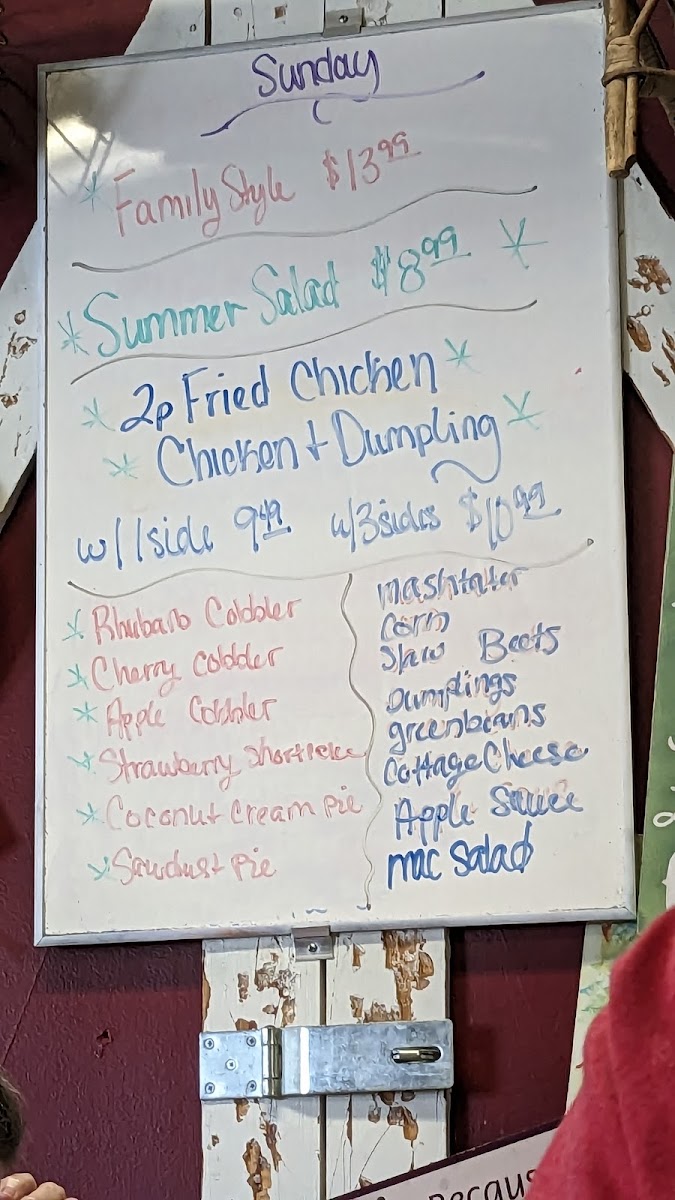 Sunday
Family Style $13.99
Summer Salad $8.99
2p Fried Chicken
Chicken + Dumpling
w/1side 9.49 w/3sides $10.99
Rhubarb Cobbler
Cherry Cobbler
Apple Cobbler
Strawberry Shortcake
Coconut Cream Pie
Sawdust Pie
mashtater
Corn
Slaw Beets
Dumplings
greenbeans
Cottage Cheese
Apple Sauce
mac Salad
Becaus